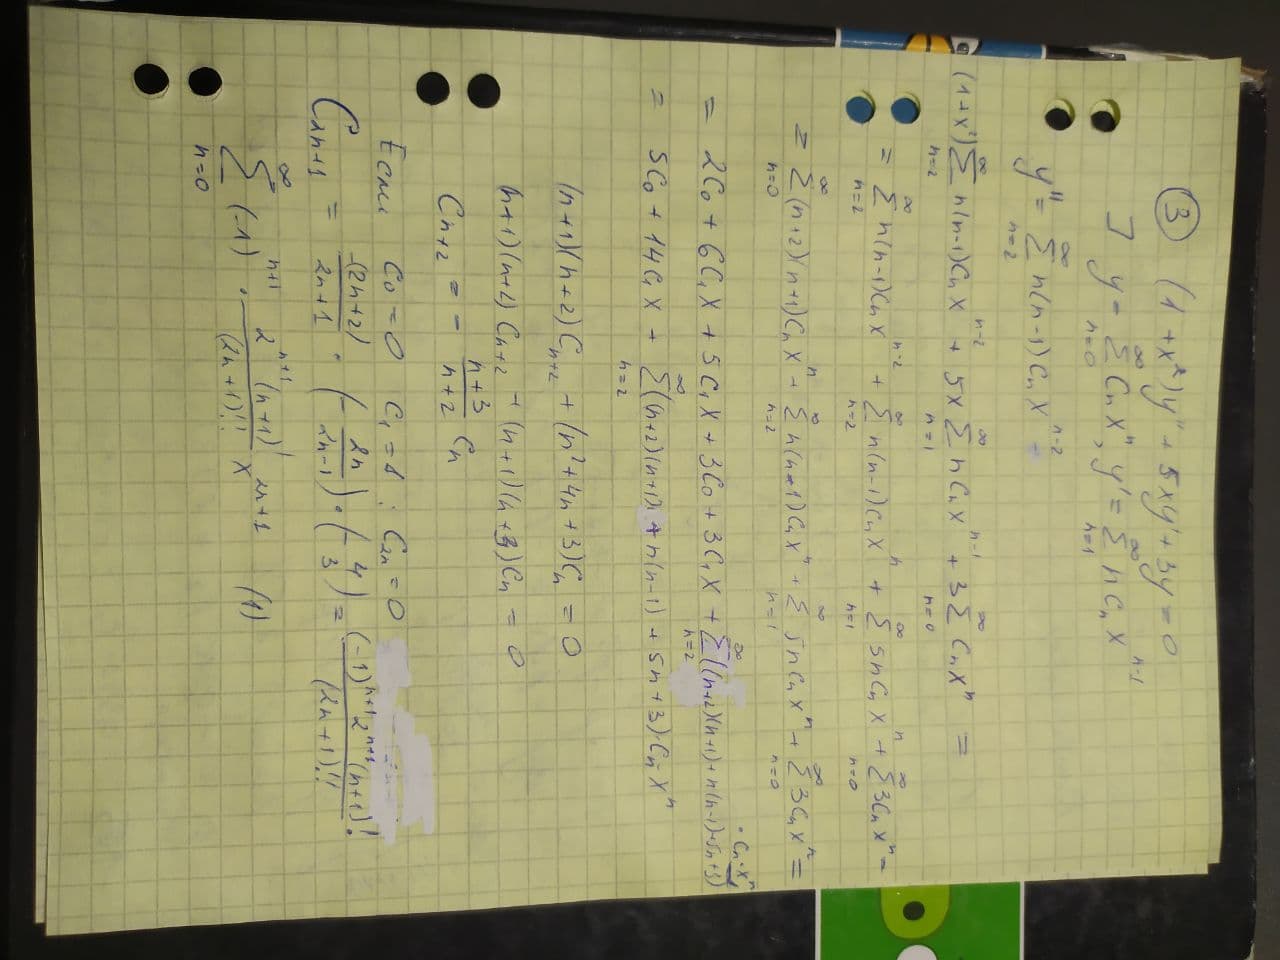 ③ (1+x²)y''+5xy'+3y=0
] y=∑_{n=0}^{∞} Cₙxⁿ, y'=∑_{n=1}^{∞} nCₙx^{n-1}
y''=∑_{n=2}^{∞} n(n-1)Cₙx^{n-2}
(1+x²)∑_{n=2}^{∞} n(n-1)Cₙx^{n-2} + 5x∑_{n=1}^{∞} nCₙx^{n-1} + 3∑_{n=0}^{∞} Cₙxⁿ =
= ∑_{n=2}^{∞} n(n-1)Cₙx^{n-2} + ∑_{n=2}^{∞} n(n-1)Cₙxⁿ + ∑_{n=1}^{∞} 5nCₙxⁿ + ∑_{n=0}^{∞} 3Cₙxⁿ =
= ∑_{n=0}^{∞} (n+2)(n+1)Cₙxⁿ + ∑_{n=2}^{∞} n(n-1)Cₙxⁿ + ∑_{n=1}^{∞} 5nCₙxⁿ + ∑_{n=0}^{∞} 3Cₙxⁿ =
= 2C₀ + 6C₁x + 5C₁x + 3C₀ + 3C₁x + ∑_{n=2}^{∞} ((n+2)(n+1)+n(n-1)+5n+3) · Cₙ·xⁿ
= 5C₀ + 14C₁x + ∑_{n=2}^{∞} ((n+2)(n+1) + n(n-1) + 5n+3)·Cₙxⁿ
(n+1)(n+2)C_{n+2} + (n²+4n+3)Cₙ = 0
(n+1)(n+2)C_{n+2} + (n+1)(n+3)Cₙ = 0
C_{n+2} = - \frac{n+3}{n+2} Cₙ
Если C₀=0 C₁=1 : C_{2n}=0
C_{2n+1} = \frac{-(2n+2)}{2n+1} · (-\frac{2n}{2n-1}) · (-\frac{4}{3}) = \frac{(-1)^{n+1}2^{n+1}(n+1)!}{(2n+1)!!}
∑_{n=0}^{∞} (-1)^{n+1} · \frac{2^{n+1}(n+1)!}{(2n+1)!!} x^{2n+1} (1)